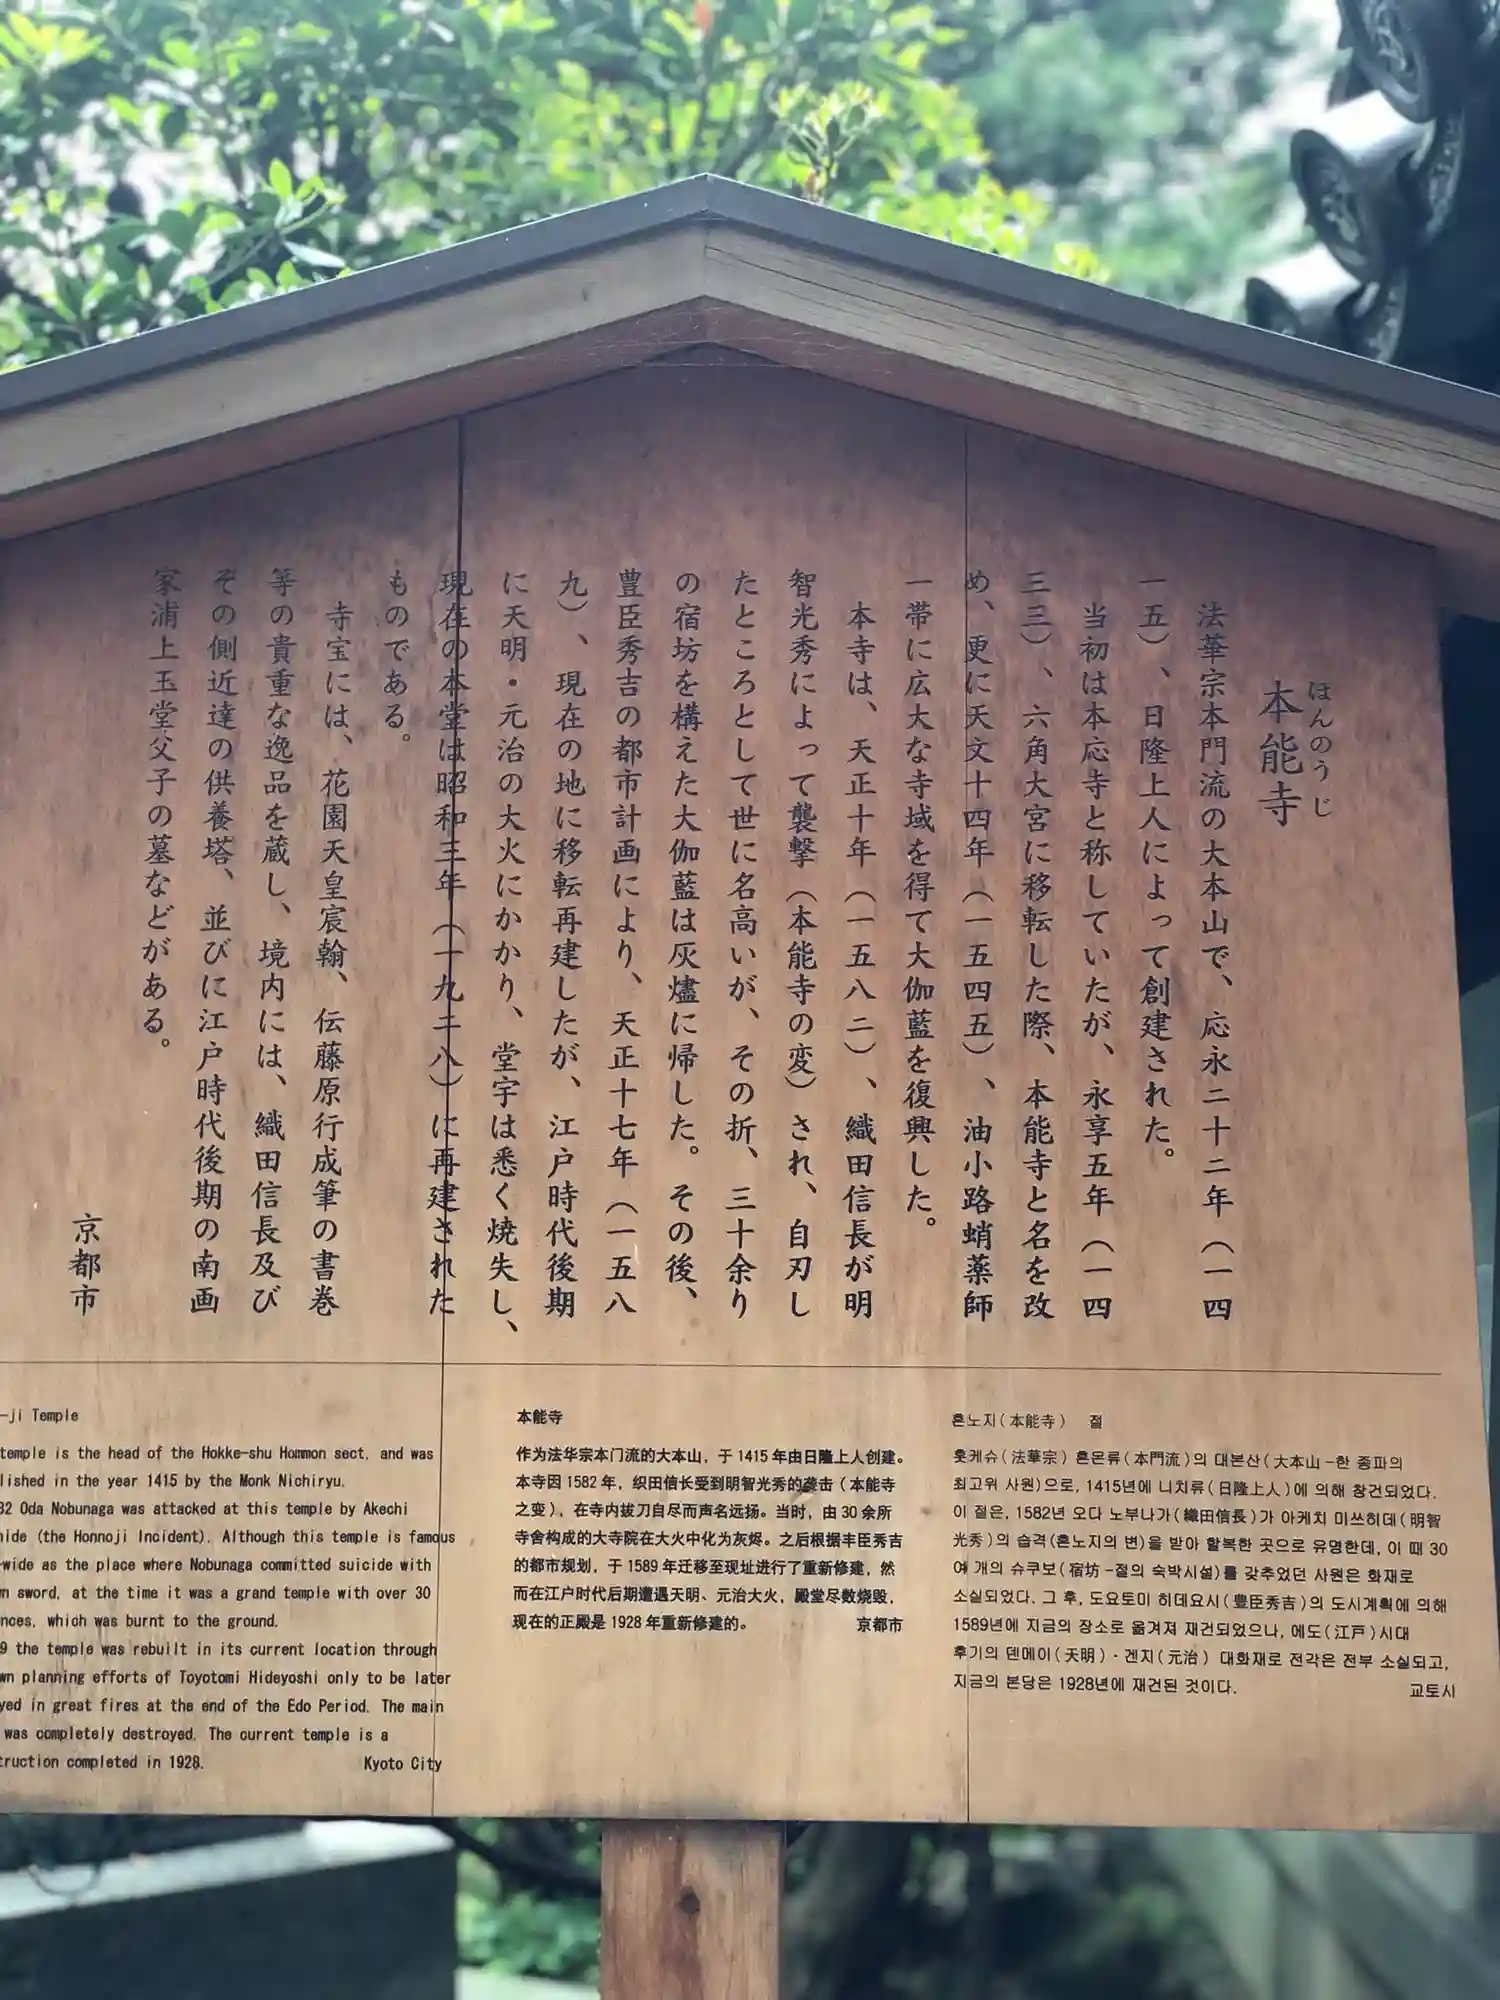 ほんのうじ
本能寺
法華宗本門流の大本山で、応永二十二年（一四
一五）、日隆上人によって創建された。
当初は本応寺と称していたが、永享五年（一四
三三）、六角大宮に移転した際、本能寺と名を改
め、更に天文十四年（一五四五）、油小路蛸薬師
一帯に広大な寺域を得て大伽藍を復興した。
本寺は、天正十年（一五八二）、織田信長が明
智光秀によって襲撃（本能寺の変）され、自刃し
たところとして世に名高いが、その折、三十余り
の宿坊を構えた大伽藍は灰燼に帰した。その後、
豊臣秀吉の都市計画により、天正十七年（一五八
九）、現在の地に移転再建したが、江戸時代後期
に天明・元治の大火にかかり、堂宇は悉く焼失し、
現在の本堂は昭和三年（一九二八）に再建された
ものである。
寺宝には、花園天皇宸翰、伝藤原行成筆の書巻
等の貴重な逸品を蔵し、境内には、織田信長及び
その側近達の供養塔、並びに江戸時代後期の南画
家浦上玉堂父子の墓などがある。
京都市
-ji Temple
temple is the head of the Hokke-shu Hommon sect, and was
lished in the year 1415 by the Monk Nichiryu.
82 Oda Nobunaga was attacked at this temple by Akechi
hide (the Honnoji Incident). Although this temple is famous
-wide as the place where Nobunaga committed suicide with
wn sword, at the time it was a grand temple with over 30
nces, which was burnt to the ground.
9 the temple was rebuilt in its current location through
wn planning efforts of Toyotomi Hideyoshi only to be later
yed in great fires at the end of the Edo Period. The main
was completely destroyed. The current temple is a
truction completed in 1928.
Kyoto City
本能寺
作为法华宗本门流的大本山，于 1415 年由日隆上人创建。
本寺因 1582 年，织田信长受到明智光秀的袭击（本能寺
之变），在寺内拔刀自尽而声名远扬。当时，由 30 余所
寺舍构成的大寺院在大火中化为灰烬。之后根据丰臣秀吉
的都市规划，于 1589 年迁移至现址进行了重新修建，然
而在江户时代后期遭遇天明、元治大火，殿堂尽数烧毁，
现在的正殿是 1928 年重新修建的。
京都市
혼노지(本能寺) 절
홋케슈(法華宗) 혼몬류(本門流)의 대본산(大本山-한 종파의
최고위 사원)으로, 1415년에 니치류(日隆上人)에 의해 창건되었다.
이 절은, 1582년 오다 노부나가(織田信長)가 아케치 미쓰히데(明智
光秀)의 습격(혼노지의 변)을 받아 할복한 곳으로 유명한데, 이 때 30
여 개의 슈쿠보(宿坊-절의 숙박시설)를 갖추었던 사원은 화재로
소실되었다. 그 후, 도요토미 히데요시(豊臣秀吉)의 도시계획에 의해
1589년에 지금의 장소로 옮겨져 재건되었으나, 에도(江戸)시대
후기의 덴메이(天明)·겐지(元治) 대화재로 전각은 전부 소실되고,
지금의 본당은 1928년에 재건된 것이다.
교토시